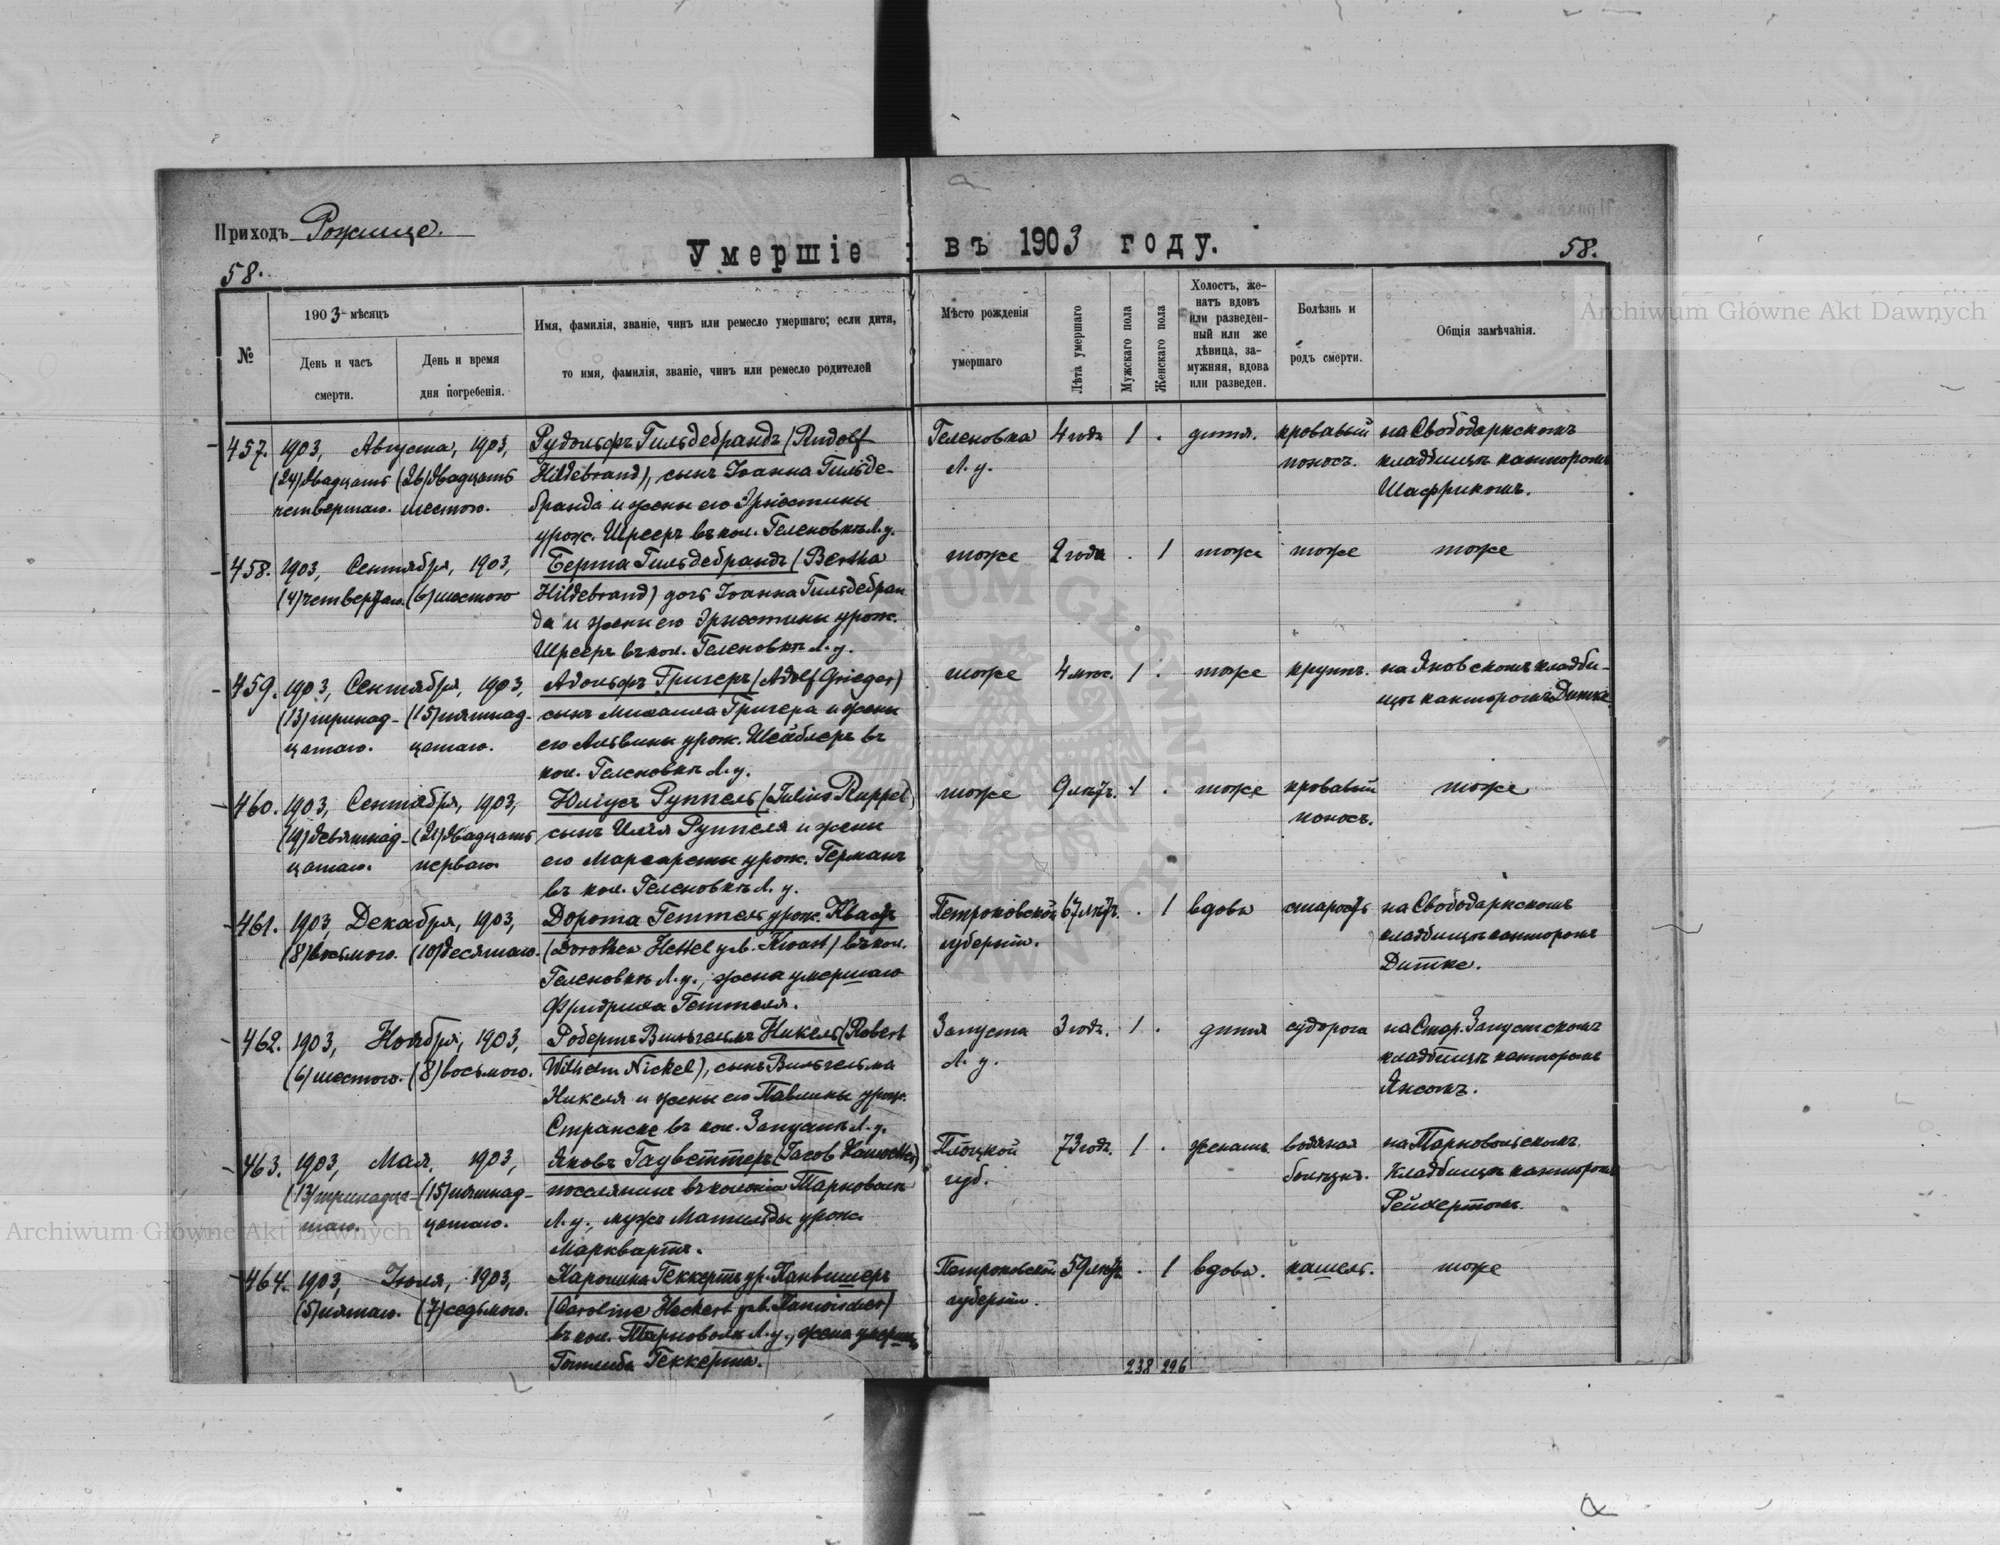 Приходъ Рожище.
Умершіе въ 1903 году.
58.
58.
№
1903 мѣсяцъ
День и часъ смерти.
День и время дня погребенія.
Имя, фамилія, званіе, чинъ или ремесло умершаго; если дитя,
то имя, фамилія, званіе, чинъ или ремесло родителей
Мѣсто рожденія
умершаго
Лѣта умершаго
Мужскаго пола
Женскаго пола
Холостъ, же-
натъ вдовъ
или разведен-
ный или же
дѣвица, за-
мужняя, вдова
или разведен.
Болѣзнь и
родъ смерти.
Общія замѣчанія.
457. 1903, Августа, 1903, Рудольфъ Гильдебрандъ (Rudolf Геленовка 4 года 1 . дитя. кровавый на Свободаркскомъ
(24) двадцать (26) двадцать Hildebrand), сынъ Іоанна Гильде- Л. у. поносъ. кладбищѣ канторомъ
четвертаго. шестого. бранда и жены его Эрнестины Шафрикомъ.
урож. Шрееръ въ кол. Геленовкѣ Л. у.
458. 1903, Сентября, 1903, Берта Гильдебрандъ (Bertha тоже 2 года . 1 тоже тоже тоже
(4) четвертаго. (6) шестого Hildebrand) дочь Іоанна Гильдебран
да и жены его Эрнестины урож.
Шрееръ въ кол. Геленовкѣ Л. у.
459. 1903, Сентября, 1903, Адольфъ Григеръ (Adolf Grieger) тоже 4 мѣс. 1 . тоже крупъ. на Яновскомъ кладби-
(13) тринад- (15) пятнад- сынъ Михаила Григера и жены щѣ канторомъ Дитке
цатаго. цатаго. его Альвины урож. Шейблеръ въ
кол. Геленовкѣ Л. у.
460. 1903, Сентября, 1903, Юліусъ Руппель (Julius Ruppel) тоже 9 лѣтъ. 1 . тоже кровавый тоже
(19) девятнад- (21) двадцать сынъ Руппеля и жены поносъ.
цатаго. перваго. его Маргареты урож. Германъ
въ кол. Геленовкѣ Л. у.
461. 1903, Декабря, 1903, Дорота Геттель урож. Квастъ Петроковской 67 лѣтъ. . 1 вдова старость на Свободаркскомъ
(8) восьмого. (10) десятаго. (Dorothea Hettel geb. Kwast) въ кол. губерніи. кладбищѣ канторомъ
Геленовкѣ Л. у., жена умершаго Дитке.
Фридриха Геттеля.
462. 1903, Ноября, 1903, Робертъ Вильгельмъ Никель (Robert Запуста 3 года. 1 . дитя судорога на Стар. Запустскомъ
(6) шестого. (8) восьмого. Wilhelm Nickel), сынъ Вильгельма Л. у. кладбищѣ канторомъ
Никеля и жены его Павлины урож. Янсомъ.
Странске въ кол. Запустѣ Л. у.
463. 1903, Мая, 1903, Яковъ Гауветтеръ (Jacob Hauwetter) Плоцкой 73 года. 1 . женатъ. водяная на Марковольскомъ
(13) тринадца- (15) пятнад- поселянинъ въ колоніи Тарноволѣ губ. болѣзнь. кладбищѣ канторомъ
таго. цатаго. Л. у., мужъ Матильды урож. Рейхертомъ.
Марквартъ.
464. 1903, Іюля, 1903, Каролина Геккертъ ур. Панвишеръ Петроковской 59 лѣтъ . 1 вдова. кашель. тоже
(5) пятаго. (7) седьмого. (Caroline Heckert geb. Panwischer) губерніи.
въ кол. Тарноволѣ Л. у., жена умерш.
Готлиба Геккерта.
238 296
Archiwum Główne Akt Dawnych
Archiwum Główne Akt Dawnych